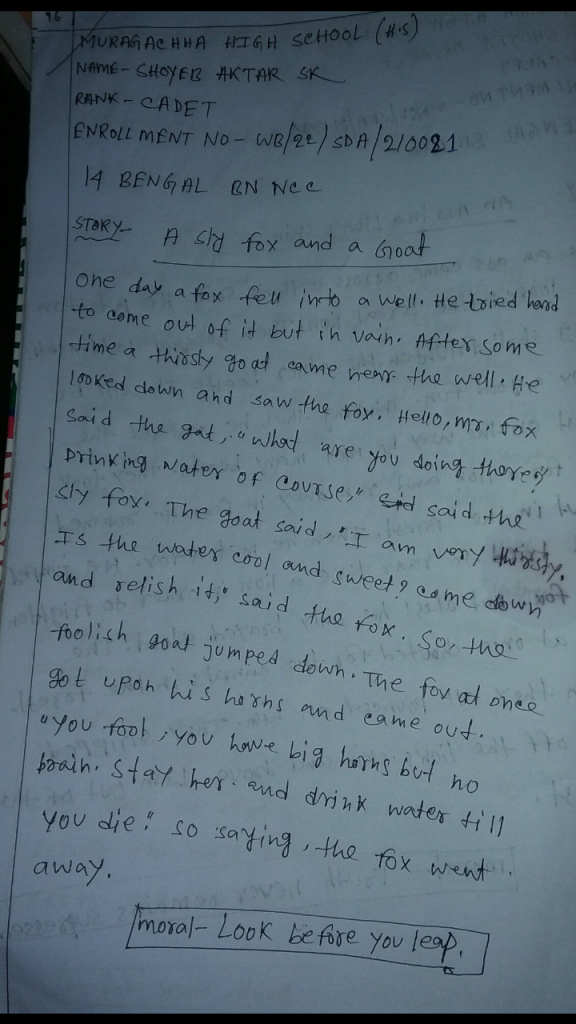 96
MURAGACHHA HIGH SCHOOL (H.S)
NAME- SHOYEB AKTAR SK
RANK- CADET
ENROLLMENT NO- WB/22/SDA/210021
14 BENGAL BN NCC
STORY- A sly fox and a Goat
one day a fox fell into a well. He tried hard
to come out of it but in vain. After some
time a thirsty goat came near the well. He
looked down and saw the fox. Hello, mr. fox
said the gat, "what are you doing there?
Drinking water of course," said the
sly fox. The goat said, "I am very thirsty.
Is the water cool and sweet? come down
and relish it," said the fox. So, the
foolish goat jumped down. The fox at once
got upon his horns and came out.
"you fool, you have big horns but no
brain. Stay her. and drink water till
you die". so saying, the fox went
away.
moral- Look before you leap.